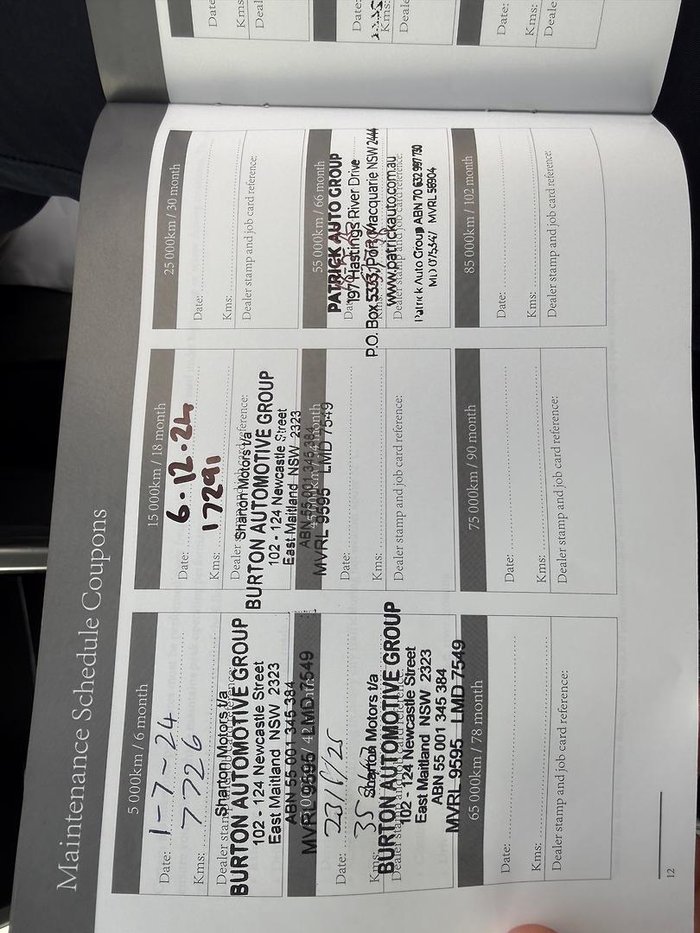 Maintenance Schedule Coupons
5 000km / 6 month
Date: 1-7-24
Kms: 7726
Dealer stamp
Sharton Motors t/a
BURTON AUTOMOTIVE GROUP
102 - 124 Newcastle Street
East Maitland NSW 2323
ABN 55 001 345 384
MVRL 9595 LMD 7549
15 000km / 18 month
Date: 6.12.24
Kms: 17291
Dealer reference:
Sharton Motors t/a
BURTON AUTOMOTIVE GROUP
102 - 124 Newcastle Street
East Maitland NSW 2323
ABN 55 001 345 384
MVRL 9595 LMD 7549
25 000km / 30 month
Date:
Kms:
Dealer stamp and job card reference:
Date:
Kms:
Sharton Motors t/a
BURTON AUTOMOTIVE GROUP
102 - 124 Newcastle Street
East Maitland NSW 2323
ABN 55 001 345 384
MVRL 9595 LMD 7549
month
Date:
Kms:
Dealer stamp and job card reference:
55 000km / 66 month
PATRICK AUTO GROUP
197 Hastings River Drive
P.O. Box 5333, Port Macquarie NSW 2444
www.patrickauto.com.au
Dealer stamp and job card reference:
Patrick Auto Group ABN 70 632 997 730
MD 075347 MVRL 58904
65 000km / 78 month
Date:
Kms:
Dealer stamp and job card reference:
75 000km / 90 month
Date:
Kms:
Dealer stamp and job card reference:
85 000km / 102 month
Date:
Kms:
Dealer stamp and job card reference:
12
Date:
Kms:
Date:
Kms:
Date:
Kms: